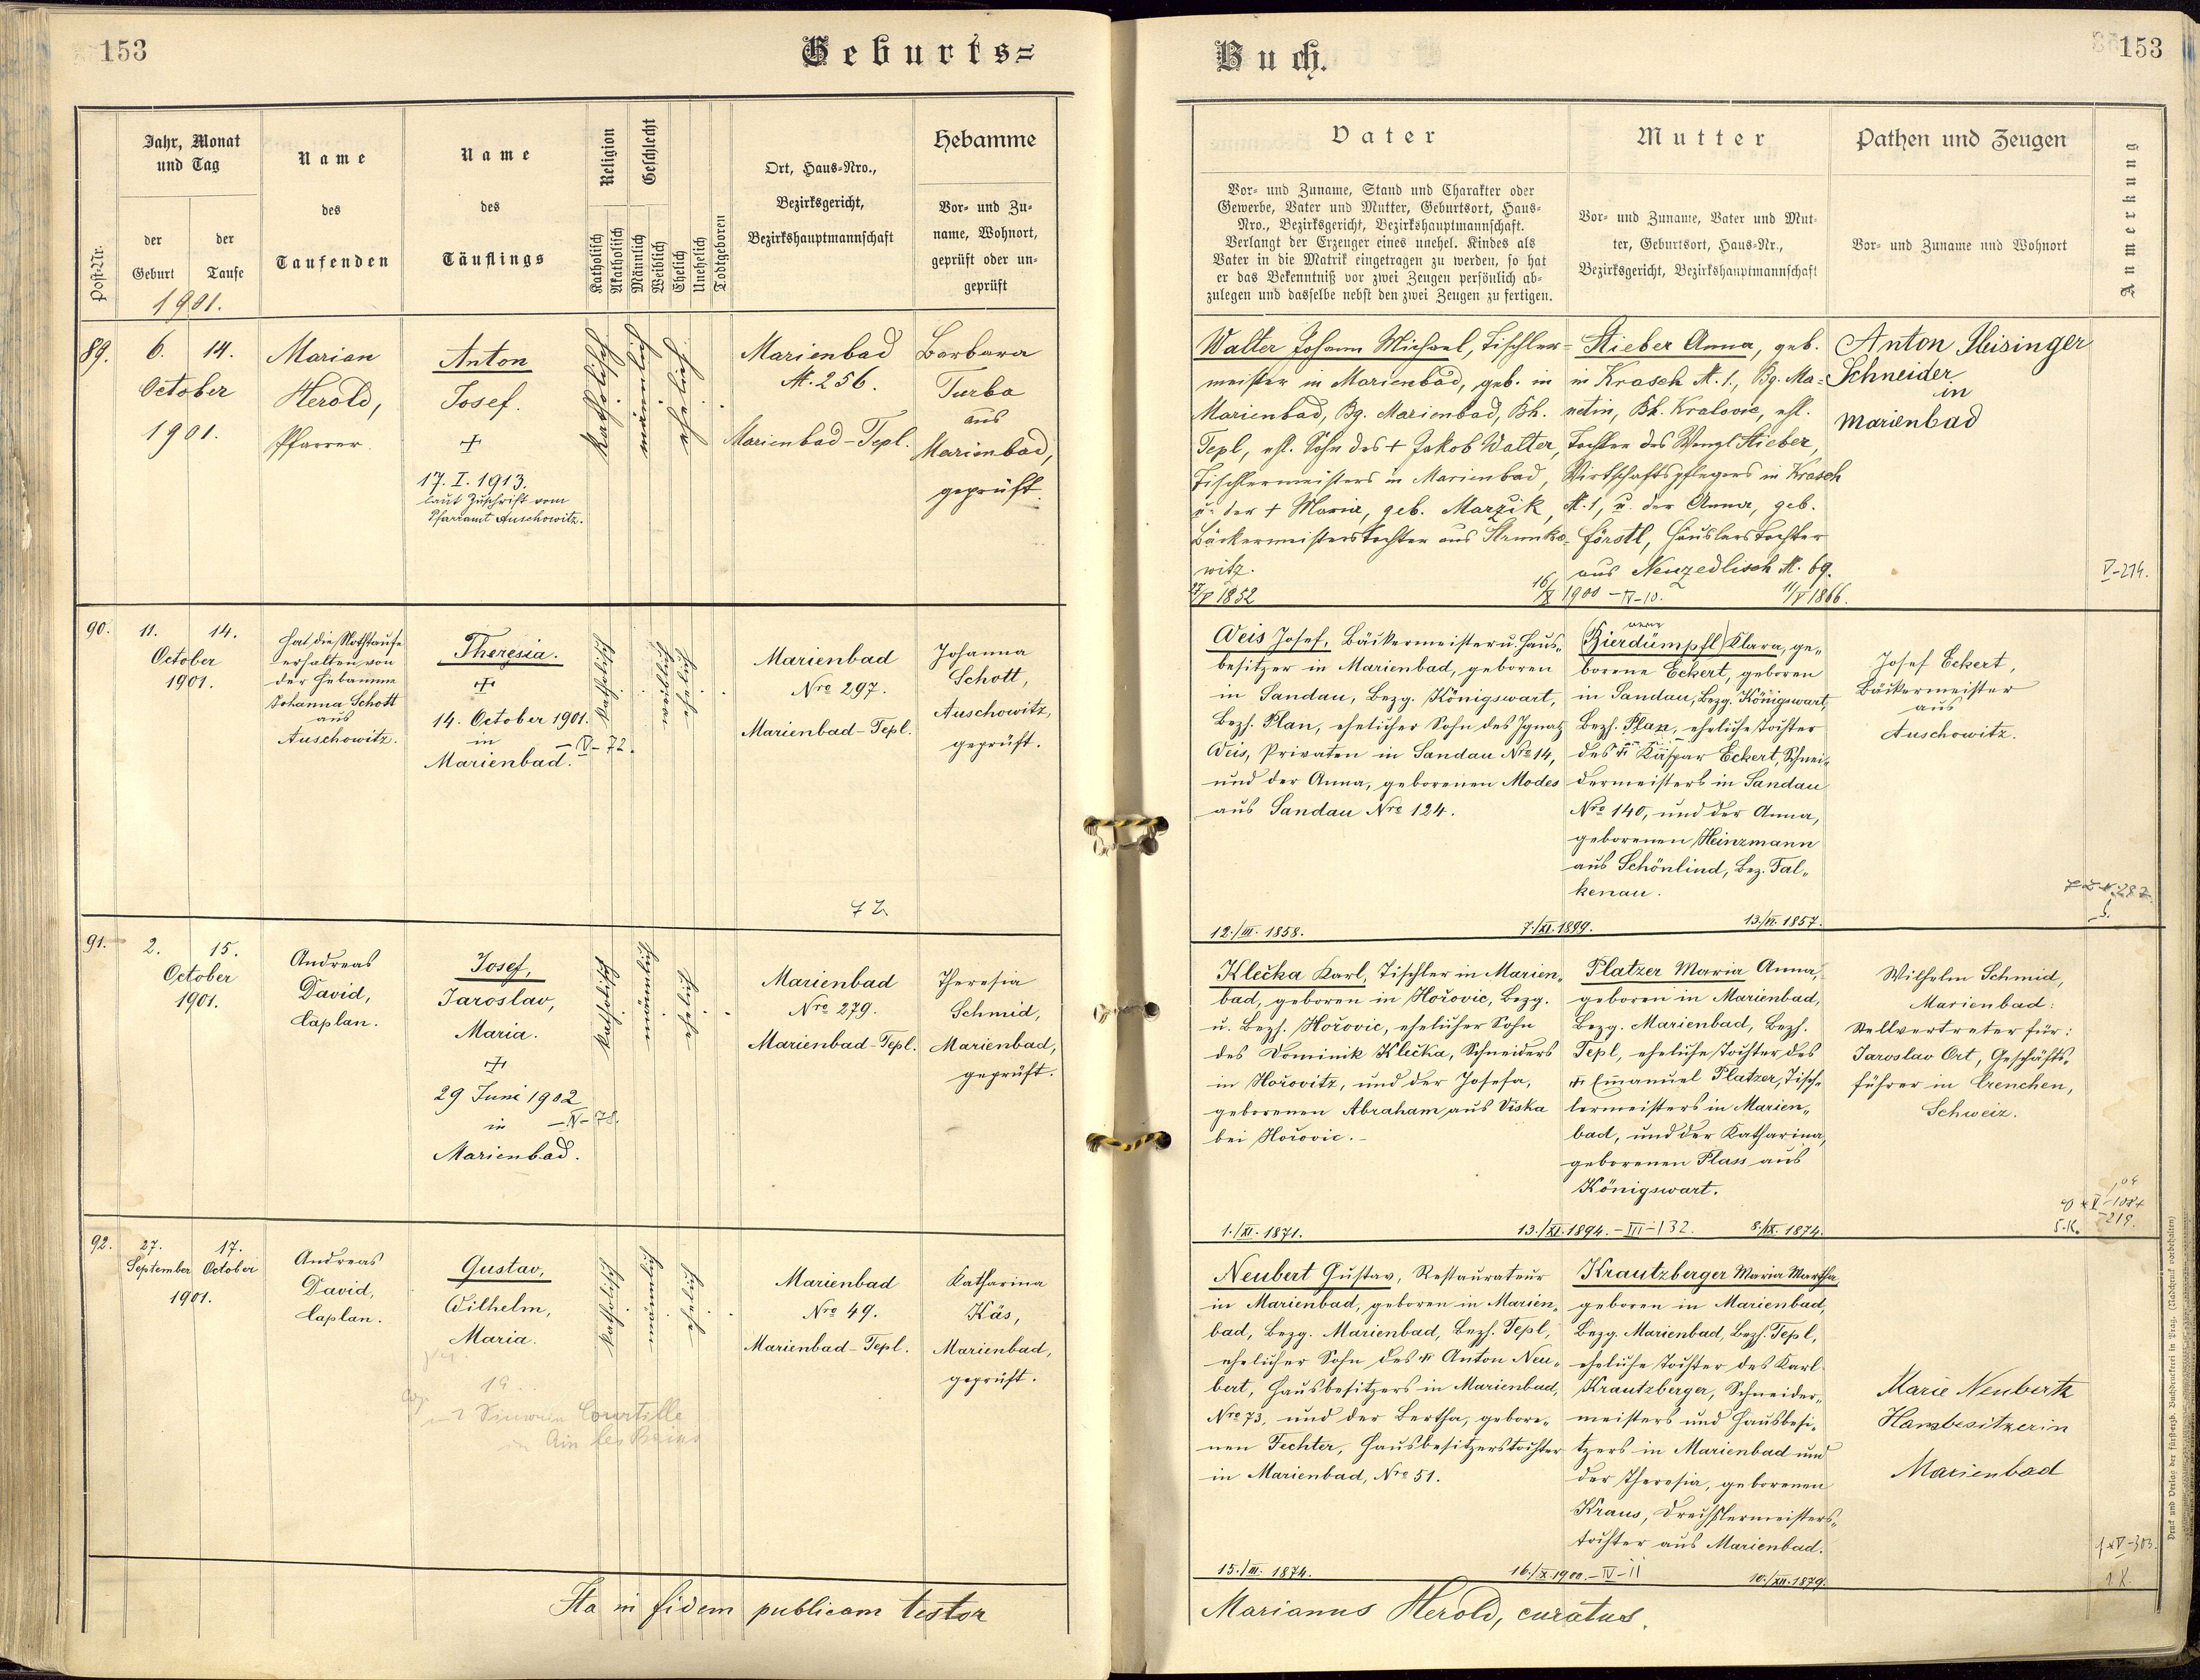 153
Geburts=
Jahr, Monat
und Tag
Name
des
Taufenden
Name
des
Täuflings
Religion
Geschlecht
Ort, Haus=Nro.,
Bezirksgericht,
Bezirkshauptmannschaft
Hebamme
Vor= und Zu=
name, Wohnort,
geprüft oder un=
geprüft
Post=Nr.
der
Geburt
der
Taufe
Katholisch
Akatholisch
Männlich
Weiblich
Ehelich
Unehelich
Todtgeboren
1901.
89.
6. 14.
October
1901.
Marian
Herold,
Pfarrer.
Anton
Josef.
+
17. I. 1913.
laut Zuschrift vom
Pfarramt Auschowitz.
katholisch
männlich
ehelich
Marienbad
N. 256.
Marienbad-Tepl.
Barbara
Turba
aus
Marienbad,
geprüft.
90.
11. 14.
October
1901.
Hat die Nothtaufe
erhalten von
der Hebamme
Johanna Schott
aus
Auschowitz.
Theresia.
+
14. October 1901.
in
Marienbad. – IV – 72.
katholisch
weiblich
ehelich
Marienbad
Nro 297.
Marienbad-Tepl.
Johanna
Schott,
Auschowitz,
geprüft.
91.
2. 15.
October
1901.
Andreas
David,
Caplan.
Josef,
Jaroslav,
Maria.
+
29 Juni 1902
in – IV – 78.
Marienbad.
katholisch
männlich
ehelich
Marienbad
Nro 279.
Marienbad-Tepl.
Theresia
Schmid,
Marienbad,
geprüft.
92.
27. 17.
September October
1901.
Andreas
David,
Caplan.
Gustav,
Wilhelm,
Maria.
19
Courtille
katholisch
männlich
ehelich
Marienbad
Nro 49.
Marienbad-Tepl.
Katharina
Käs,
Marienbad,
geprüft.
Ita in fidem publicam testor
Buch.
153
Vater
Vor= und Zuname, Stand und Charakter oder
Gewerbe, Vater und Mutter, Geburtsort, Haus=
Nro., Bezirksgericht, Bezirkshauptmannschaft.
Verlangt der Erzeuger eines unehel. Kindes als
Vater in die Matrik eingetragen zu werden, so hat
er das Bekenntniß vor zwei Zeugen persönlich ab=
zulegen und dasselbe nebst den zwei Zeugen zu fertigen.
Mutter
Vor= und Zuname, Vater und Mut=
ter, Geburtsort, Haus=Nr.,
Bezirksgericht, Bezirkshauptmannschaft
Pathen und Zeugen
Vor= und Zuname und Wohnort
Anmerkung
Walter Johann Michael, Tischler=
meister in Marienbad, geb. in
Marienbad, Bg. Marienbad, Bh.
Tepl, ehl. Sohn des + Jakob Walter,
Tischlermeisters in Marienbad,
u. der + Maria, geb. Marzik,
Bäckermeisterstochter aus Strunko=
witz.
27/V 1852
16/X 1900 – IV – 10.
Stieber Anna, geb.
in Krasch N. 1., Bg. Ma=
netin, Bh. Kralovic, ehl.
Tochter des Wenzl Stieber,
Wirtschaftspflegers in Krasch
N. 1, u. der Anna, geb.
Förstl, Häuslerstochter
aus Neuzedlisch N. 69.
11/V 1866.
Anton Fleisinger
Schneider
in
Marienbad
V – 214.
Weis Josef, Bäckermeister u. Haus„
besitzer in Marienbad, geboren
in Sandau, Bezg. Königswart,
Bezh. Plan, ehelicher Sohn des Ignatz
Weis, Privaten in Sandau Nro 14,
und der Anna, geborenen Modes
aus Sandau Nro 124.
12./III. 1858.
7./XI. 1899.
(Bierdümpfl) Klara, ge„
borene Eckert, geboren
in Sandau, Bezg. Königswart,
Bezh. Plan, eheliche Tochter
des + Kaspar Eckert, Schnei„
dermeisters in Sandau
Nro 140, und der Anna,
geborenen Heinzmann
aus Schönlind, Bez. Fal„
kenau.
13./VI. 1857.
Josef Eckert,
Bäckermeister
aus
Auschowitz.
Klečka Karl, Tischler in Marien„
bad, geboren in Hořovic, Bezg.
u. Bezh. Hořovic, ehelicher Sohn
des Dominik Klečka, Schneiders
in Hořovitz, und der Josefa,
geborenen Abraham aus Viska
bei Hořovic. –
1./XI. 1871.
13./XI. 1894. – III – 132.
Platzer Maria Anna,
geboren in Marienbad,
Bezg. Marienbad, Bezh.
Tepl, eheliche Tochter des
+ Emanuel Platzer, Tisch„
lermeisters in Marien„
bad, und der Katharina,
geborenen Plass aus
Königswart.
8./IX. 1874.
Wilhelm Schmid,
Marienbad:
Stellvertreter für:
Jaroslav Ort, Geschäfts„
führer in Crenchen,
Schweiz.
Neubert Gustav, Restaurateur
in Marienbad, geboren in Marien„
bad, Bezg. Marienbad, Bezh. Tepl,
ehelicher Sohn des + Anton Neu„
bert, Hausbesitzers in Marienbad,
Nro 73, und der Bertha, gebore„
nen Fechter, Hausbesitzerstochter
in Marienbad, Nro 51.
15./III. 1874.
16./X. 1900. – IV – 11
Krautzberger Maria Martha
geboren in Marienbad,
Bezg. Marienbad, Bezh. Tepl,
eheliche Tochter des Karl
Krautzberger, Schneider„
meisters und Hausbesi„
tzers in Marienbad und
der Theresia, geborenen
Kraus, Drechslermeisters„
tochter aus Marienbad.
10./XII. 1879.
Marie Neubert
Hausbesitzerin
Marienbad
Marianus Herold, curatus.
Druck und Verlag der fürst=erzb. Buchdruckerei in Prag. (Nachdruck vorbehalten)